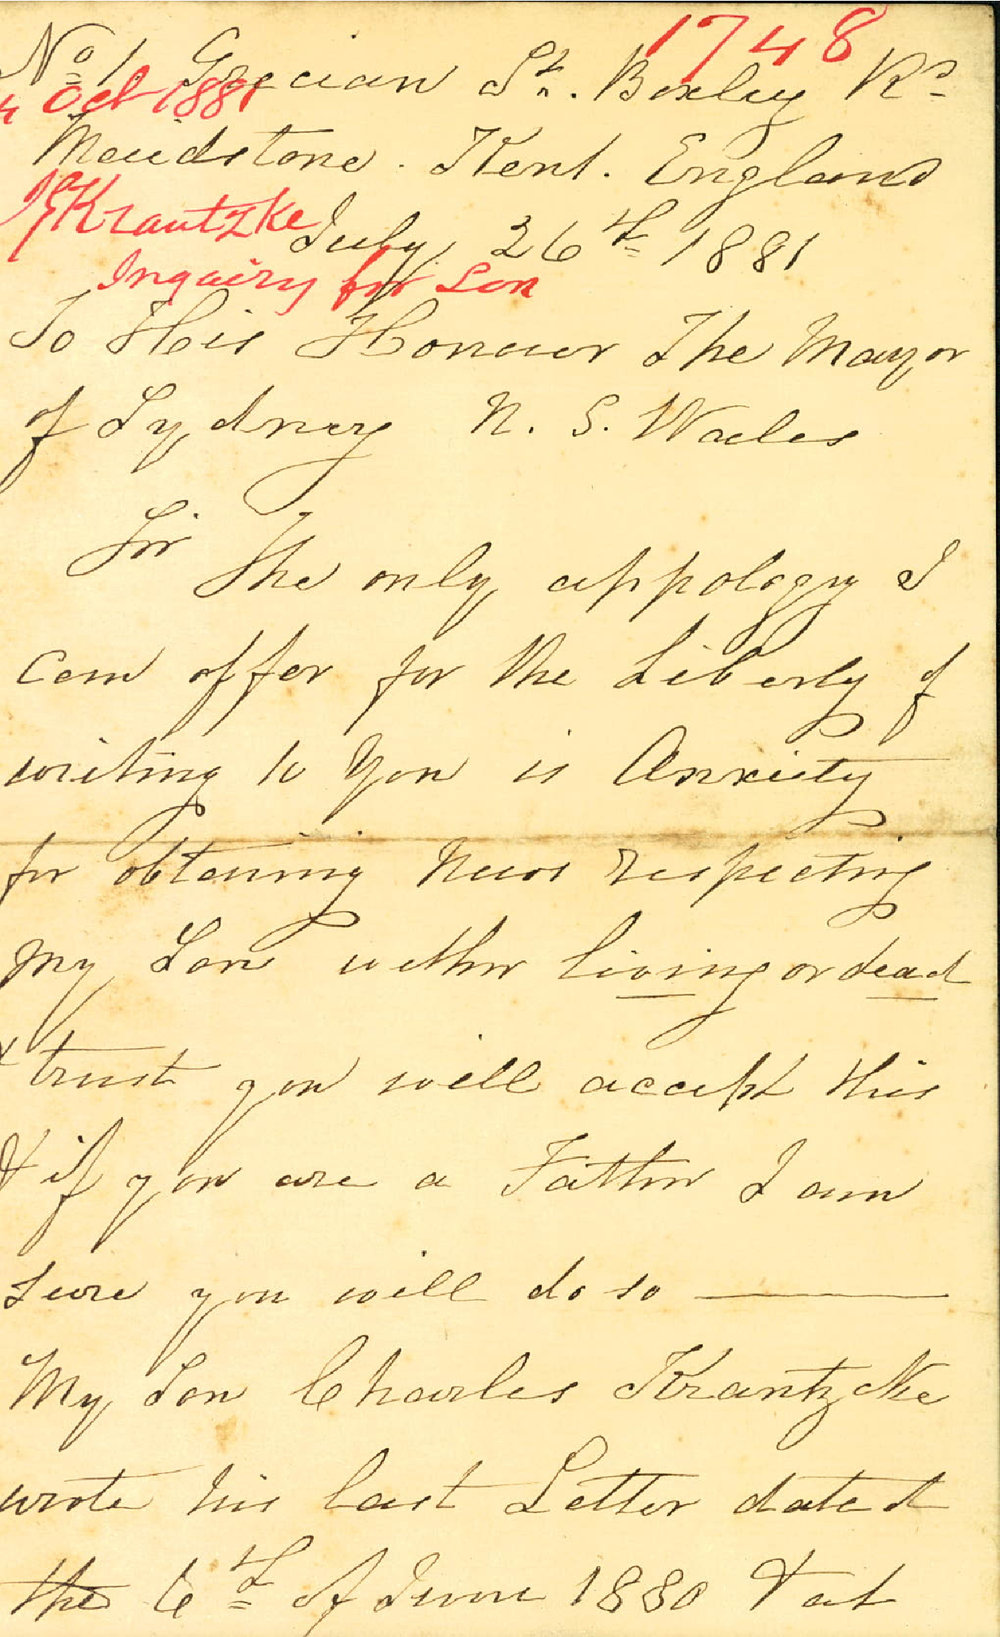 1748
No 1 Grecian St. Boxley Rd
4 Oct 1881
Maidstone. Kent. England
Krantzke
July 26th 1881
Inquiry for Son
To His Honour The Mayor
of Sydney N. S. Wales
Sir
The only appology I
can offer for the Liberty of
writing to You is Anxiety
for obtaining News respecting
My Son wether living or dead
& trust you will accept this
& if you are a Father I am
Sure you will do so
My Son Charles Krantzcke
wrote his last Letter dated
the 6th of June 1880 & at